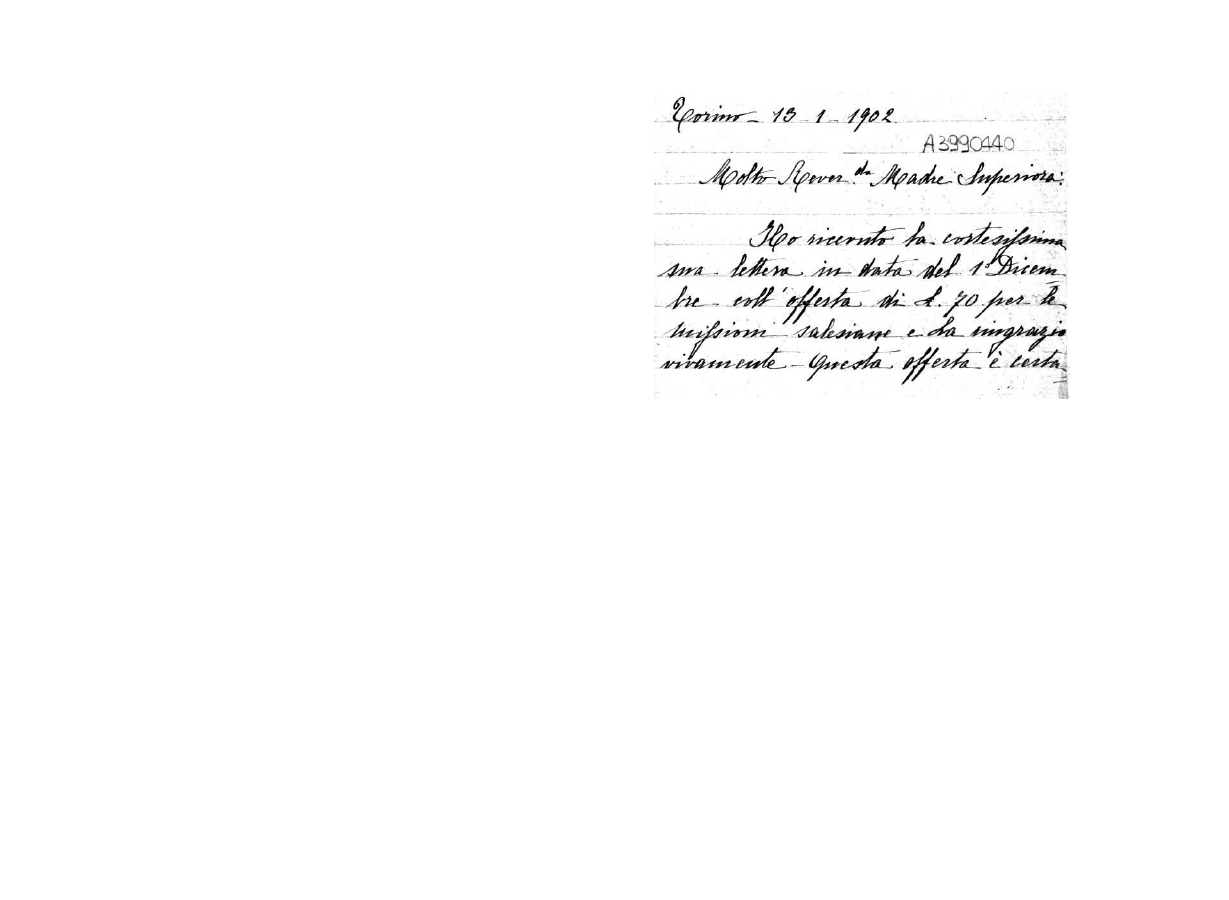 Torino - 13 - 1 - 1902
A3990440
Molto Rever.da Madre Superiora:
Ho ricevuto la cortesissima
sua lettera in data del 1° Dicem
bre coll'offerta di L. 70 per le
missioni salesiane e La ringrazio
vivamente - Questa offerta è certa